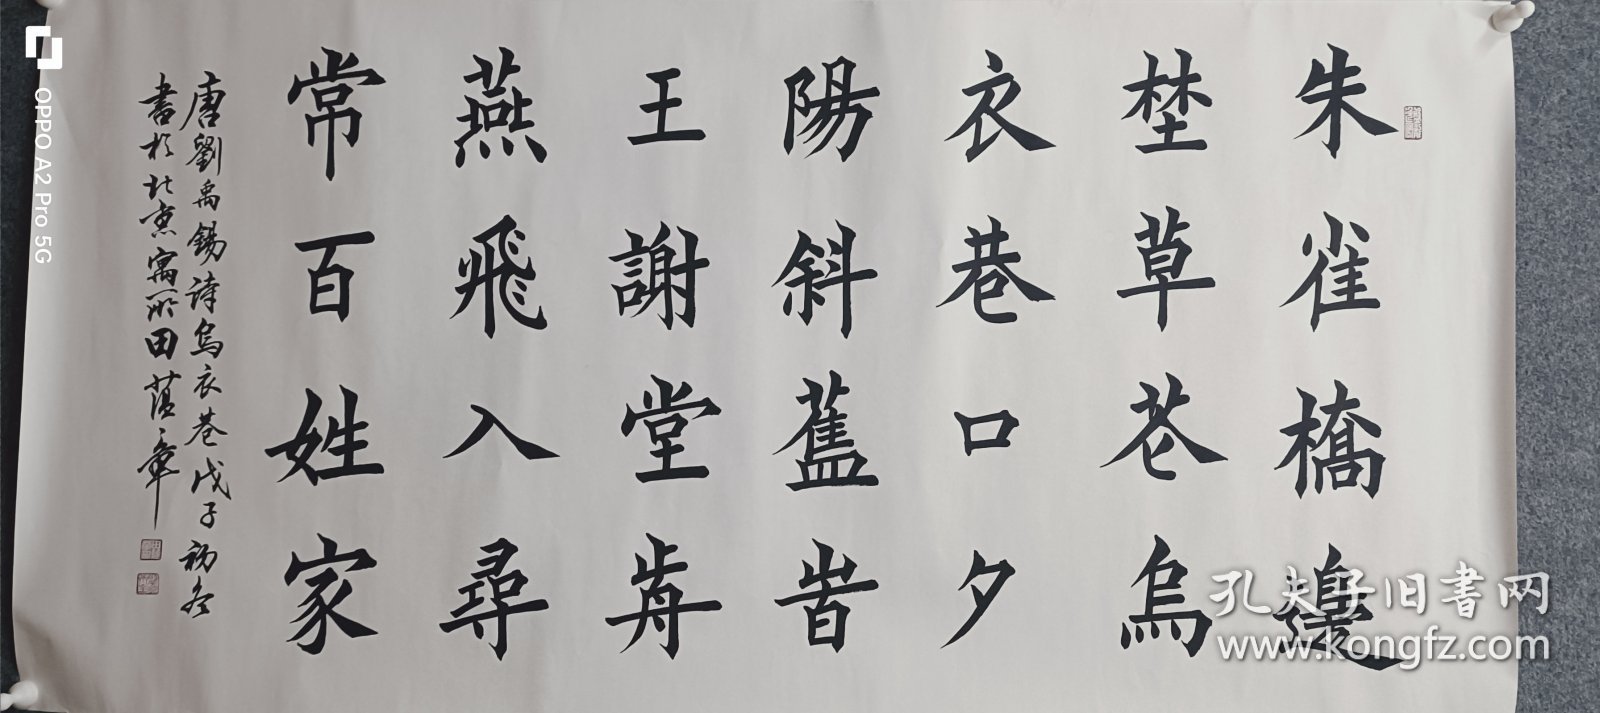 朱雀橋邊
埜草苍烏
衣巷口夕
陽斜舊旹
王謝堂歬
燕飛入尋
常百姓家
唐劉禹錫詩烏衣巷戊子初冬
書於北京寓所田蕴章
OPPO A2 Pro 5G
孔夫子旧书网
www.kongfz.com